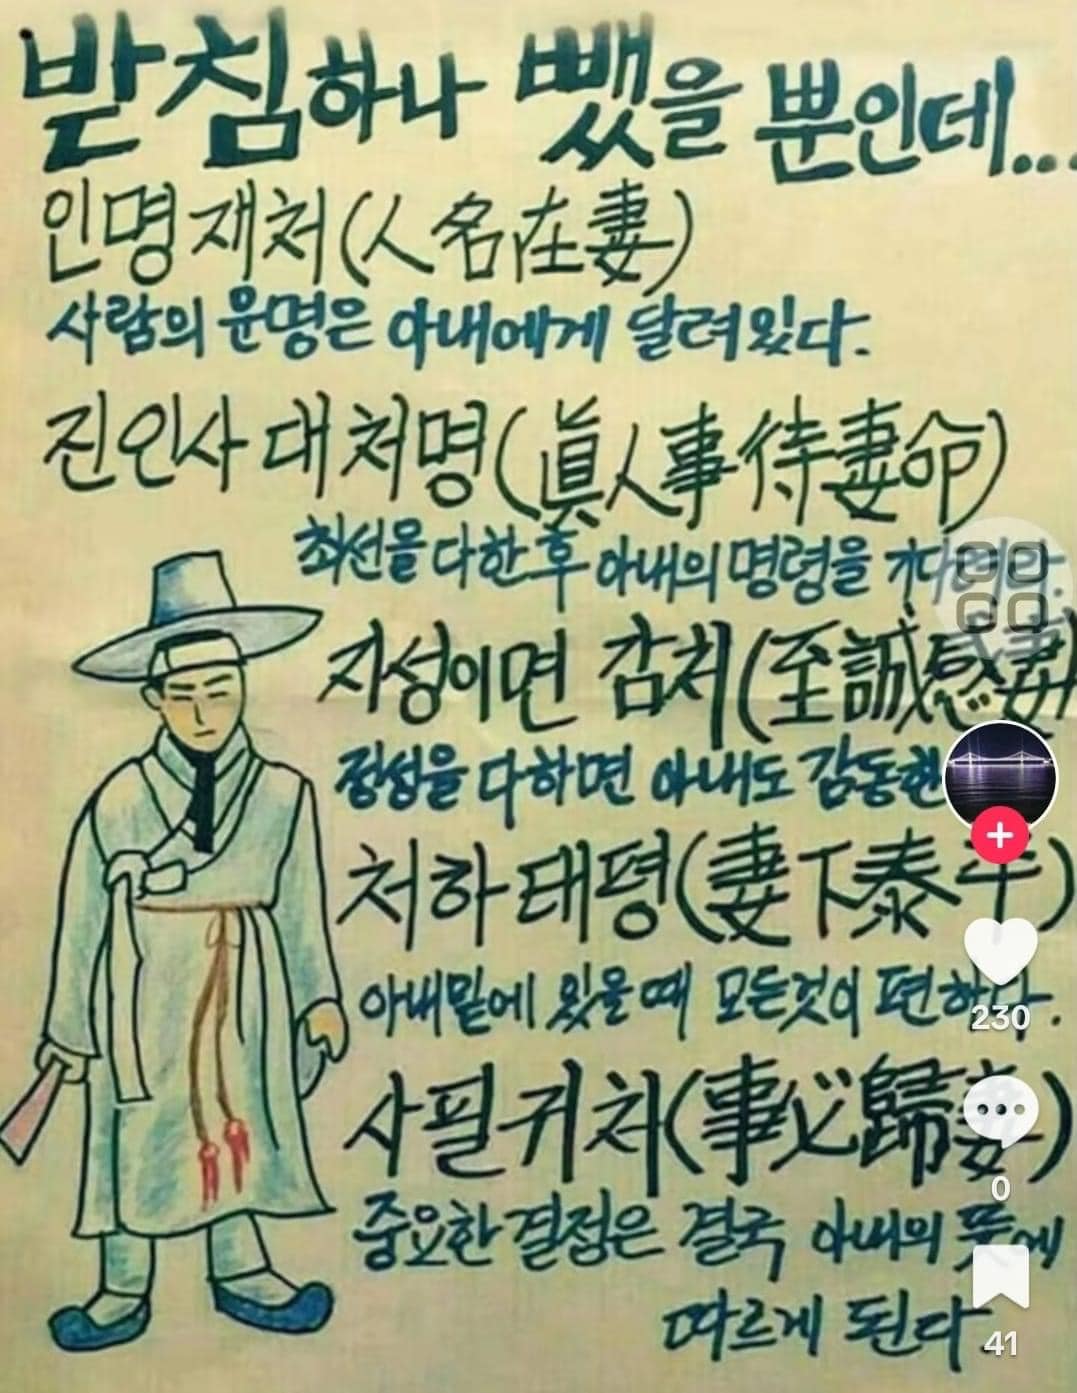 받침하나 뺐을 뿐인데...
인명재처(人名在妻)
사람의 운명은 아내에게 달려있다.
진인사대처명(眞人事待妻命)
최선을 다한 후 아내의 명령을
지성이면 감처(至誠感妻)
정성을 다하면 아내도 감동한
처하태평(妻下泰平)
아내밑에 있을때 모든것이 편하다.
사필귀처(事必歸妻)
중요한 결정은 결국 아내의 뜻에
따르게 된다
230
0
41